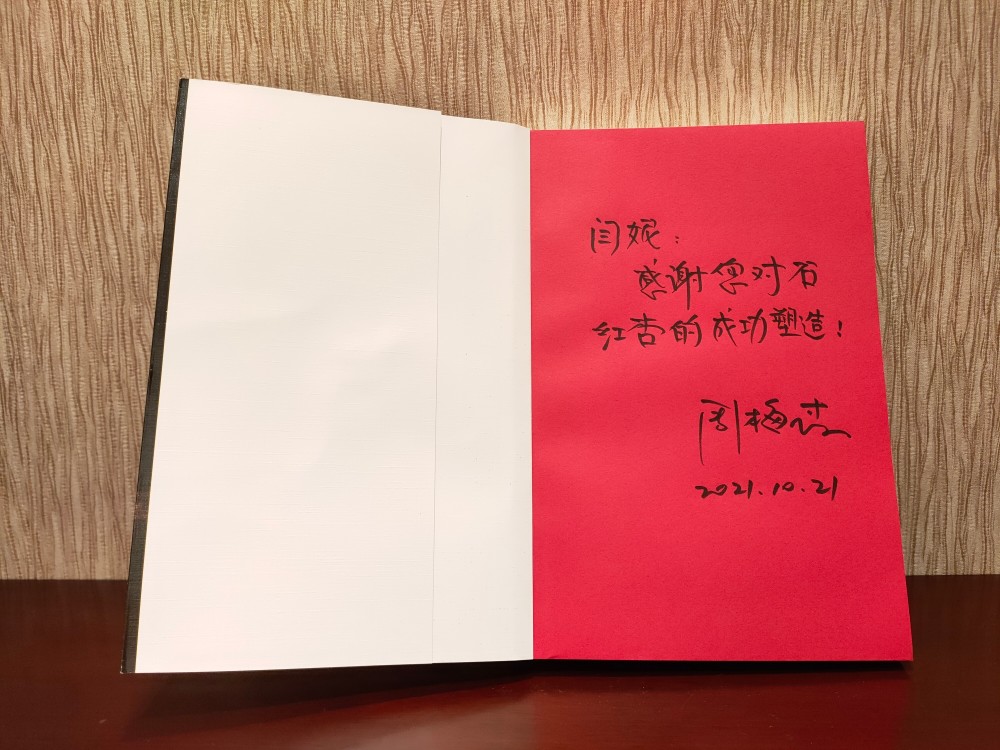 闫妮：
感谢您对石
红杏的成功塑造！
周梅森
2021.10.21